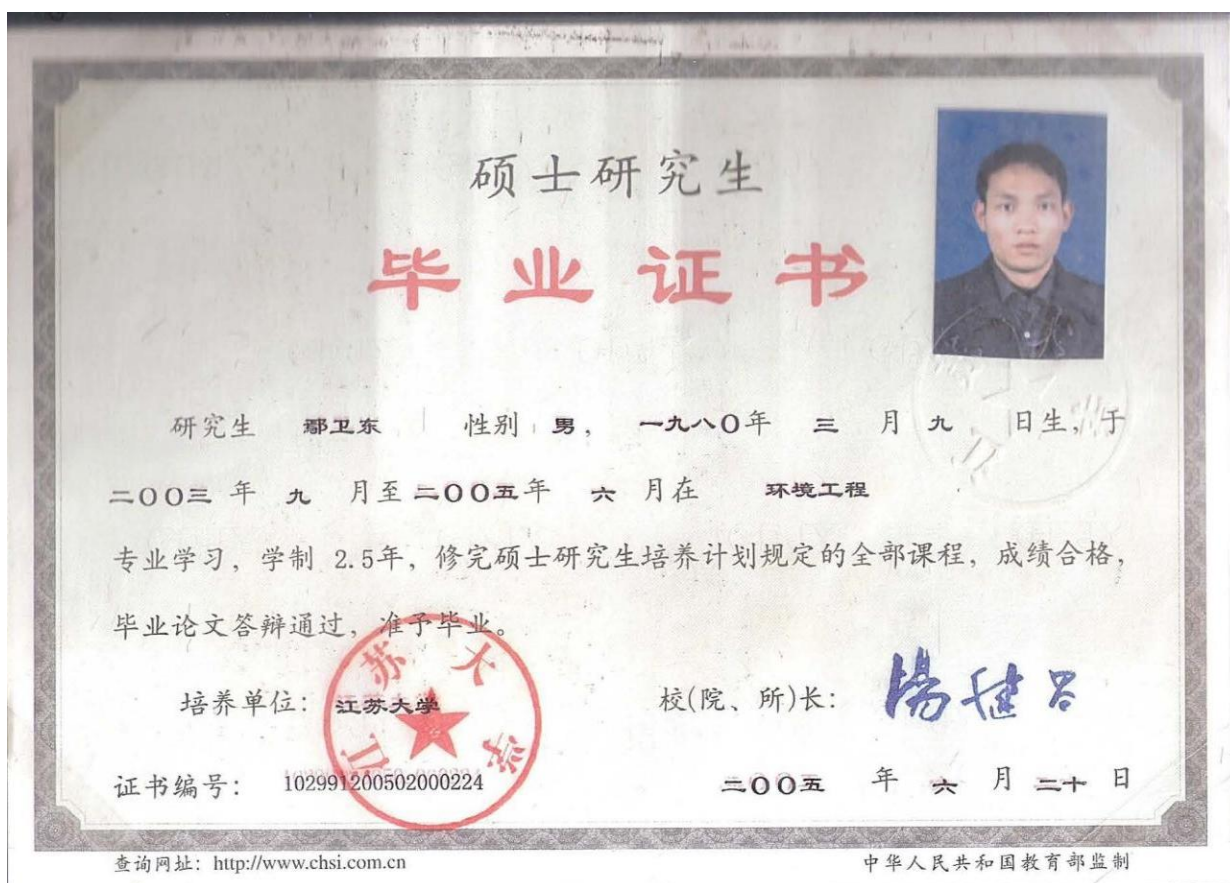 硕士研究生
毕业证书
研究生 鄢卫东 性别 男, 一九八〇年 三 月 九 日生,于
二〇〇三 年 九 月至 二〇〇五年 六 月在 环境工程
专业学习, 学制 2.5年, 修完硕士研究生培养计划规定的全部课程, 成绩合格,
毕业论文答辩通过, 准予毕业。
江苏大学
培养单位: 江苏大学 校(院、所)长:
证书编号: 102991200502000224 二〇〇五 年 六 月 二十 日
查询网址: http://www.chsi.com.cn 中华人民共和国教育部监制